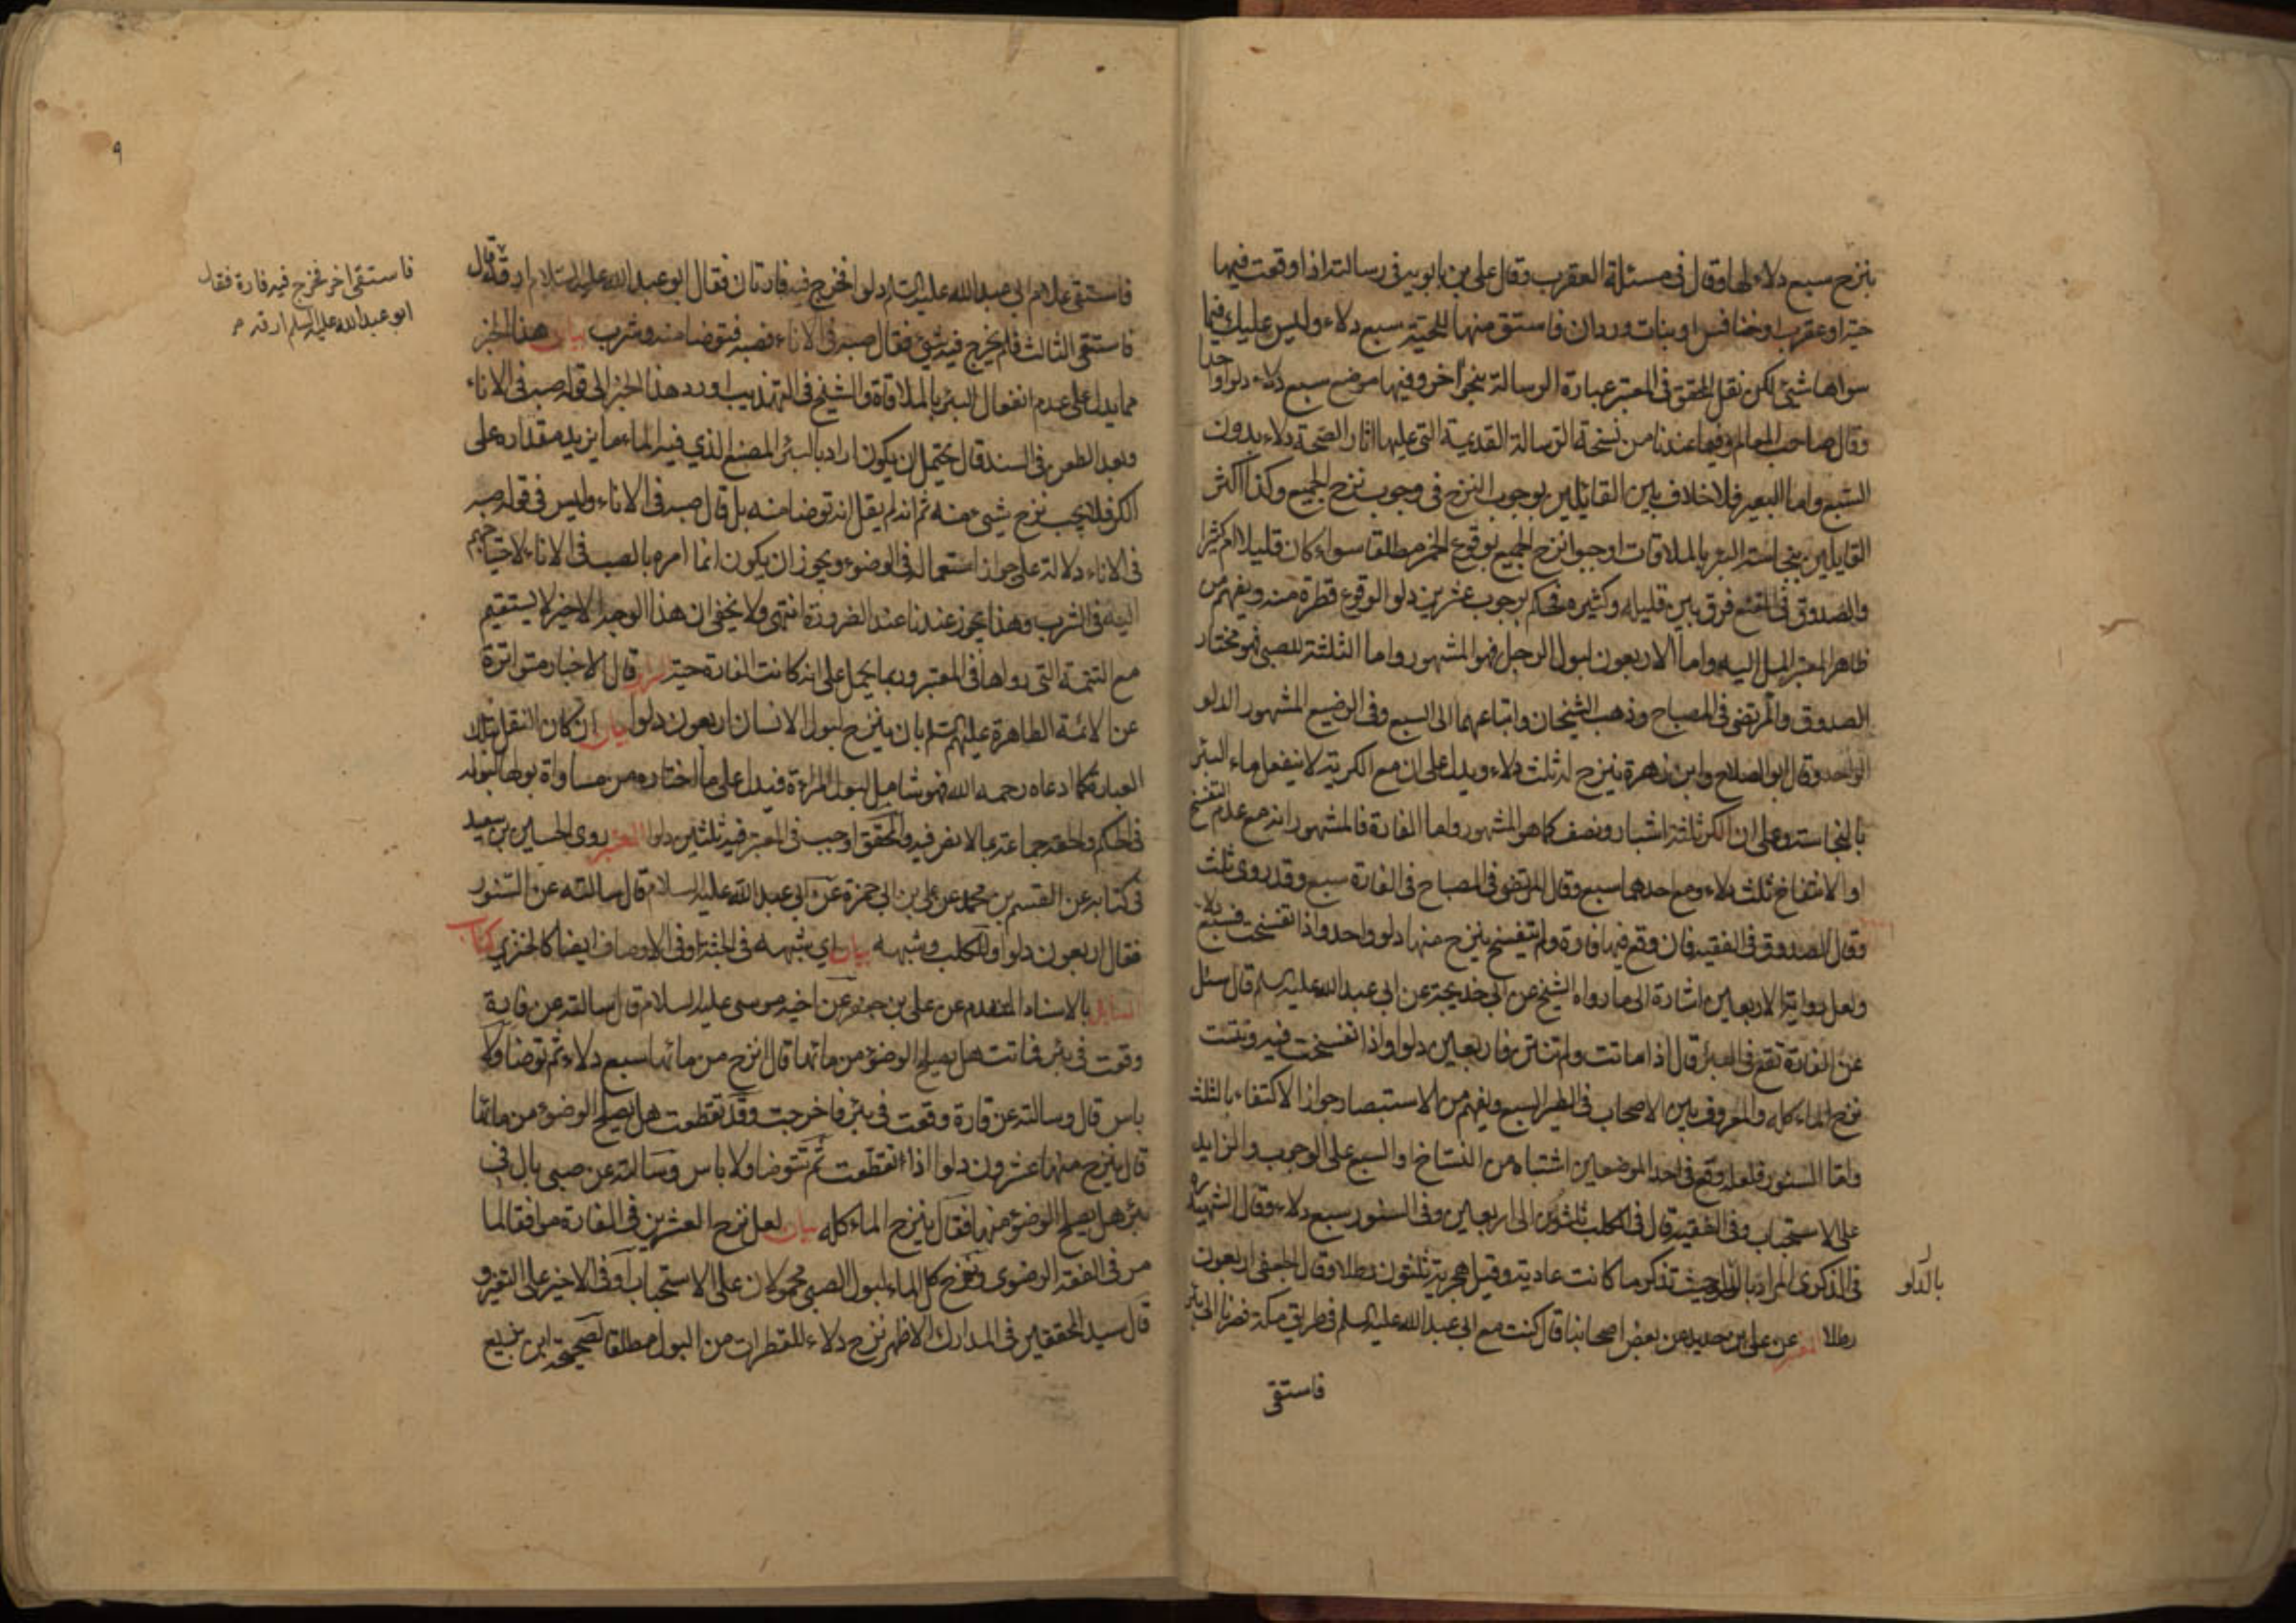 ينزح سبع دلاء لها وقال في مسئلة العقرب وقال علي بن بابويه في رسالته اذا وقعت فيها
حية او عقرب او خنافس او بنات وردان فاستق منها للحية سبع دلاء وليس عليك فيما
سواها شئ لكن نقل المحقق في المعتبر عبارة الرسالة بنحو آخر وفيها موضع سبع دلاء دلوا واحدا
وقال صاحب المعالم وفيما عندنا من نسخة الرسالة القديمة التي عليها اثار الصحة دلاء بدون
السبع واما البعير فلا خلاف بين القائلين بوجوب النزح في وجوب نزح الجميع وكذا اكثر
القايلين بنجاسة البئر بالملاقات اوجبوا نزح الجميع بوقوع الخمر مطلقا سواء كان قليلا ام كثيرا
والصدوق في المقنع فرق بين قليله وكثيره فحكم بوجوب عشرين دلوا لوقوع قطرة منه ويفهم من
ظاهر المعتبر الميل اليه واما الاربعون لبول الرجل فهو المشهور واما الثلثة للصبي فهو مختار
الصدوق والمرتضى في المصباح وذهب الشيخان واتباعهما الى السبع وفي الرضيع المشهور الدلو
الواحد وقال ابو الصلاح وابن زهرة ينزح له ثلث دلاء ويدل على ان مع الكرية لا ينفعل ماء البئر
بالنجاسة وعلى ان الكر ثلثة اشبار ونصف كما هو المشهور واما الفارة فالمشهور انه مع عدم التفسخ
او الانتفاخ ثلث دلاء ومع احدهما سبع وقال المرتضى في المصباح في الفارة سبع وقد روى ثلث
وقال الصدوق في الفقيه فان وقع فيها فارة ولم يتفسخ ينزح منها دلو واحد واذا تفسخت فسبع دلاء
ولعل رواية الاربعين اشارة الى ما رواه الشيخ عن ابي خديجة عن ابي عبد الله عليه السلم قال سئل
عن الفارة تقع في البئر قال اذا ماتت ولم تنتن فاربعين دلوا واذا تفسخت فيه ونتنت
نزح الماء كله والمعروف بين الاصحاب في الطير السبع ويفهم من الاستبصار جواز الاكتفاء بالثلث
واما السنور فلعله وقع في احد الموضعين اشتباه من النساخ او السبع على الوجوب والزايد
على الاستحباب وفي الفقيه قال في الكلب ثلثون الى اربعين وفي السنور سبع دلاء وقال الشهيد ره
في الذكرى المراد بالدلو حيث تذكر ما كانت عادية وقيل هجرية ثلثون رطلا وقال الجعفي اربعون
رطلا المعتبر عن علي بن حديد عن بعض اصحابنا قال كنت مع ابي عبد الله عليه السلم في طريق مكة فصرنا الى بئر
بالدلو
فاستقى
٩
فاستقى غلام ابي عبد الله عليه السلم دلوا فخرج فيه فارتان فقال ابو عبد الله عليه السلام ارقه قال
فاستقى الثالث فلم يخرج فيه شئ فقال صبه في الاناء فصبه فتوضا منه وشرب بيان هذا الخبر
مما يدل على عدم انفعال البئر بالملاقاة والشيخ في التهذيب اورد هذا الخبر الى قوله صبه في الاناء
وبعد الطعن في السند قال يحتمل ان يكون اراد بالبئر المصنع الذي فيه الماء ما يزيد مقداره على
الكر فلا يجب نزح شيء منه ثم انه لم يقل انه توضا منه بل قال صبه في الاناء وليس في قوله صبه
في الاناء دلالة على جواز استعماله في الوضوء ويجوز ان يكون انما امره بالصب في الاناء لاحتياجهم
اليه في الشرب وهذا يجوز عندنا عند الضرورة انتهى ولا يخفى ان هذا الوجه الاخير لا يستقيم
مع التتمة التي رواها في المعتبر وربما يحمل على انه كانت الفارة حية السرائر قال الاخبار متواترة
عن الائمة الطاهرة عليهم السلم بان ينزح لبول الانسان اربعون دلوا بيان ان كان النقل بتلك
العبارة كما ادعاه رحمه الله فهو شامل لبول المرءة فيدل على ما اختاره من مساواة بولها لبوله
في الحكم والحقه جماعة بما لا نص فيه والمحقق اوجب في المعتبر فيه ثلثين دلوا المعتبر روى الحسين بن سعيد
في كتابه عن القسم بن محمد عن علي بن ابي حمزة عن ابي عبد الله عليه السلام قال سالته عن السنور
فقال اربعون دلوا وللكلب وشبهه بيان اي شبهه في الجثة او في الاوصاف ايضا كالخنزير كتاب
المسايل بالاسناد المتقدم عن علي بن جعفر عن اخيه موسى عليه السلام قال سالته عن فارة
وقعت في بئر فماتت هل يصلح الوضوء من مائها قال انزح من مائها سبع دلاء ثم توضا ولا
باس قال وسالته عن فارة وقعت في بئر فاخرجت وقد تقطعت هل يصلح الوضوء من مائها
قال ينزح منها عشرون دلوا اذا تقطعت ثم تتوضا ولا باس وسالته عن صبي بال في
بئر هل يصلح الوضوء منها فقال ينزح الماء كله بيان لعل نزح العشرين في الفارة موافقا لما
مر في الفقه الرضوي ونزح كل الماء لبول الصبي محمولان على الاستحباب او في الاخير على التغير و
قال سيد المحققين في المدارك الاظهر نزح دلاء للقطرات من البول مطلقا لصحيحة ابن بزيع
فاستقى اخر فخرج فيه فارة فقال
ابو عبد الله عليه السلم ارقه م